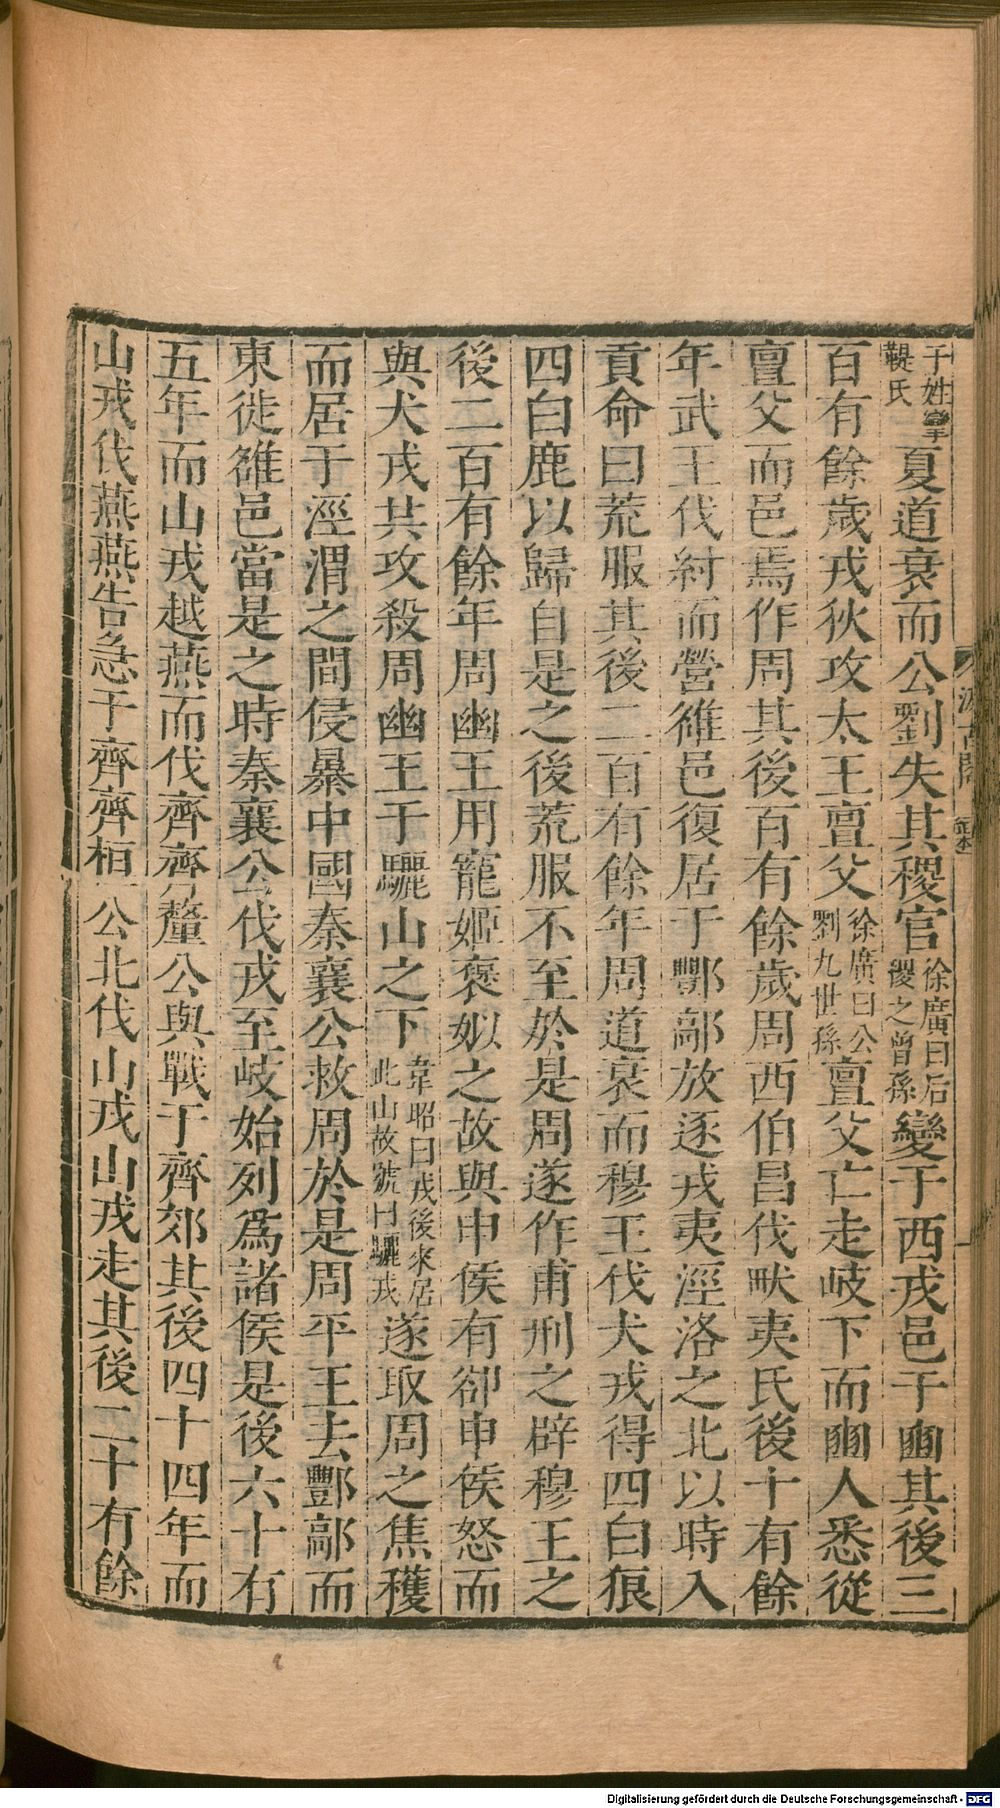 子姓攣
鞮氏
夏道衰而公劉失其稷官
徐廣曰后
稷之曾孫
變于西戎邑于豳其後三
百有餘歲戎狄攻太王亶父
徐廣曰公
劉九世孫
亶父亡走岐下而豳人悉從
亶父而邑焉作周其後百有餘歲周西伯昌伐畎夷氏後十有餘
年武王伐紂而營雒邑復居于酆鄗放逐戎夷涇洛之北以時入
貢命曰荒服其後二百有餘年周道衰而穆王伐犬戎得四白狼
四白鹿以歸自是之後荒服不至於是周遂作甫刑之辟穆王之
後二百有餘年周幽王用寵姬褒姒之故與申侯有卻申侯怒而
與犬戎共攻殺周幽王于驪山之下
韋昭曰戎後來居
此山故號曰驪戎
遂取周之焦穫
而居于涇渭之間侵暴中國秦襄公救周於是周平王去酆鄗而
東徙雒邑當是之時秦襄公伐戎至岐始列爲諸侯是後六十有
五年而山戎越燕而伐齊齊釐公與戰于齊郊其後四十四年而
山戎伐燕燕告急于齊齊桓公北伐山戎山戎走其後二十有餘
Digitalisierung gefördert durch die Deutsche Forschungsgemeinschaft - DFG